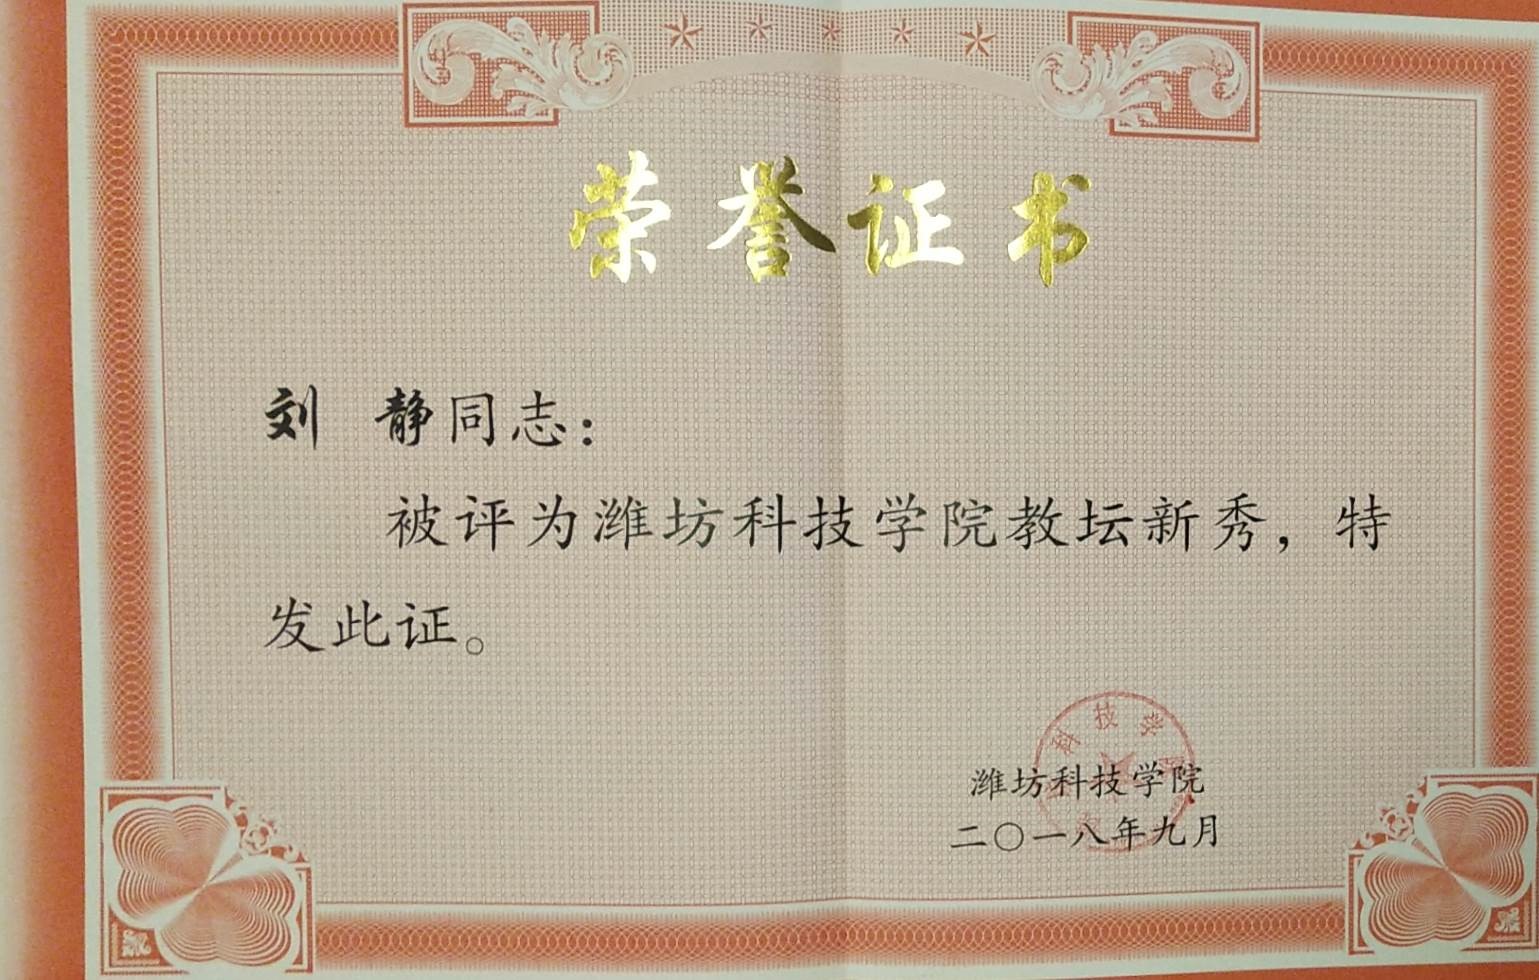 荣誉证书
刘 静同志：
被评为潍坊科技学院教坛新秀，特
发此证。
科技学
潍坊科技学院
二〇一八年九月